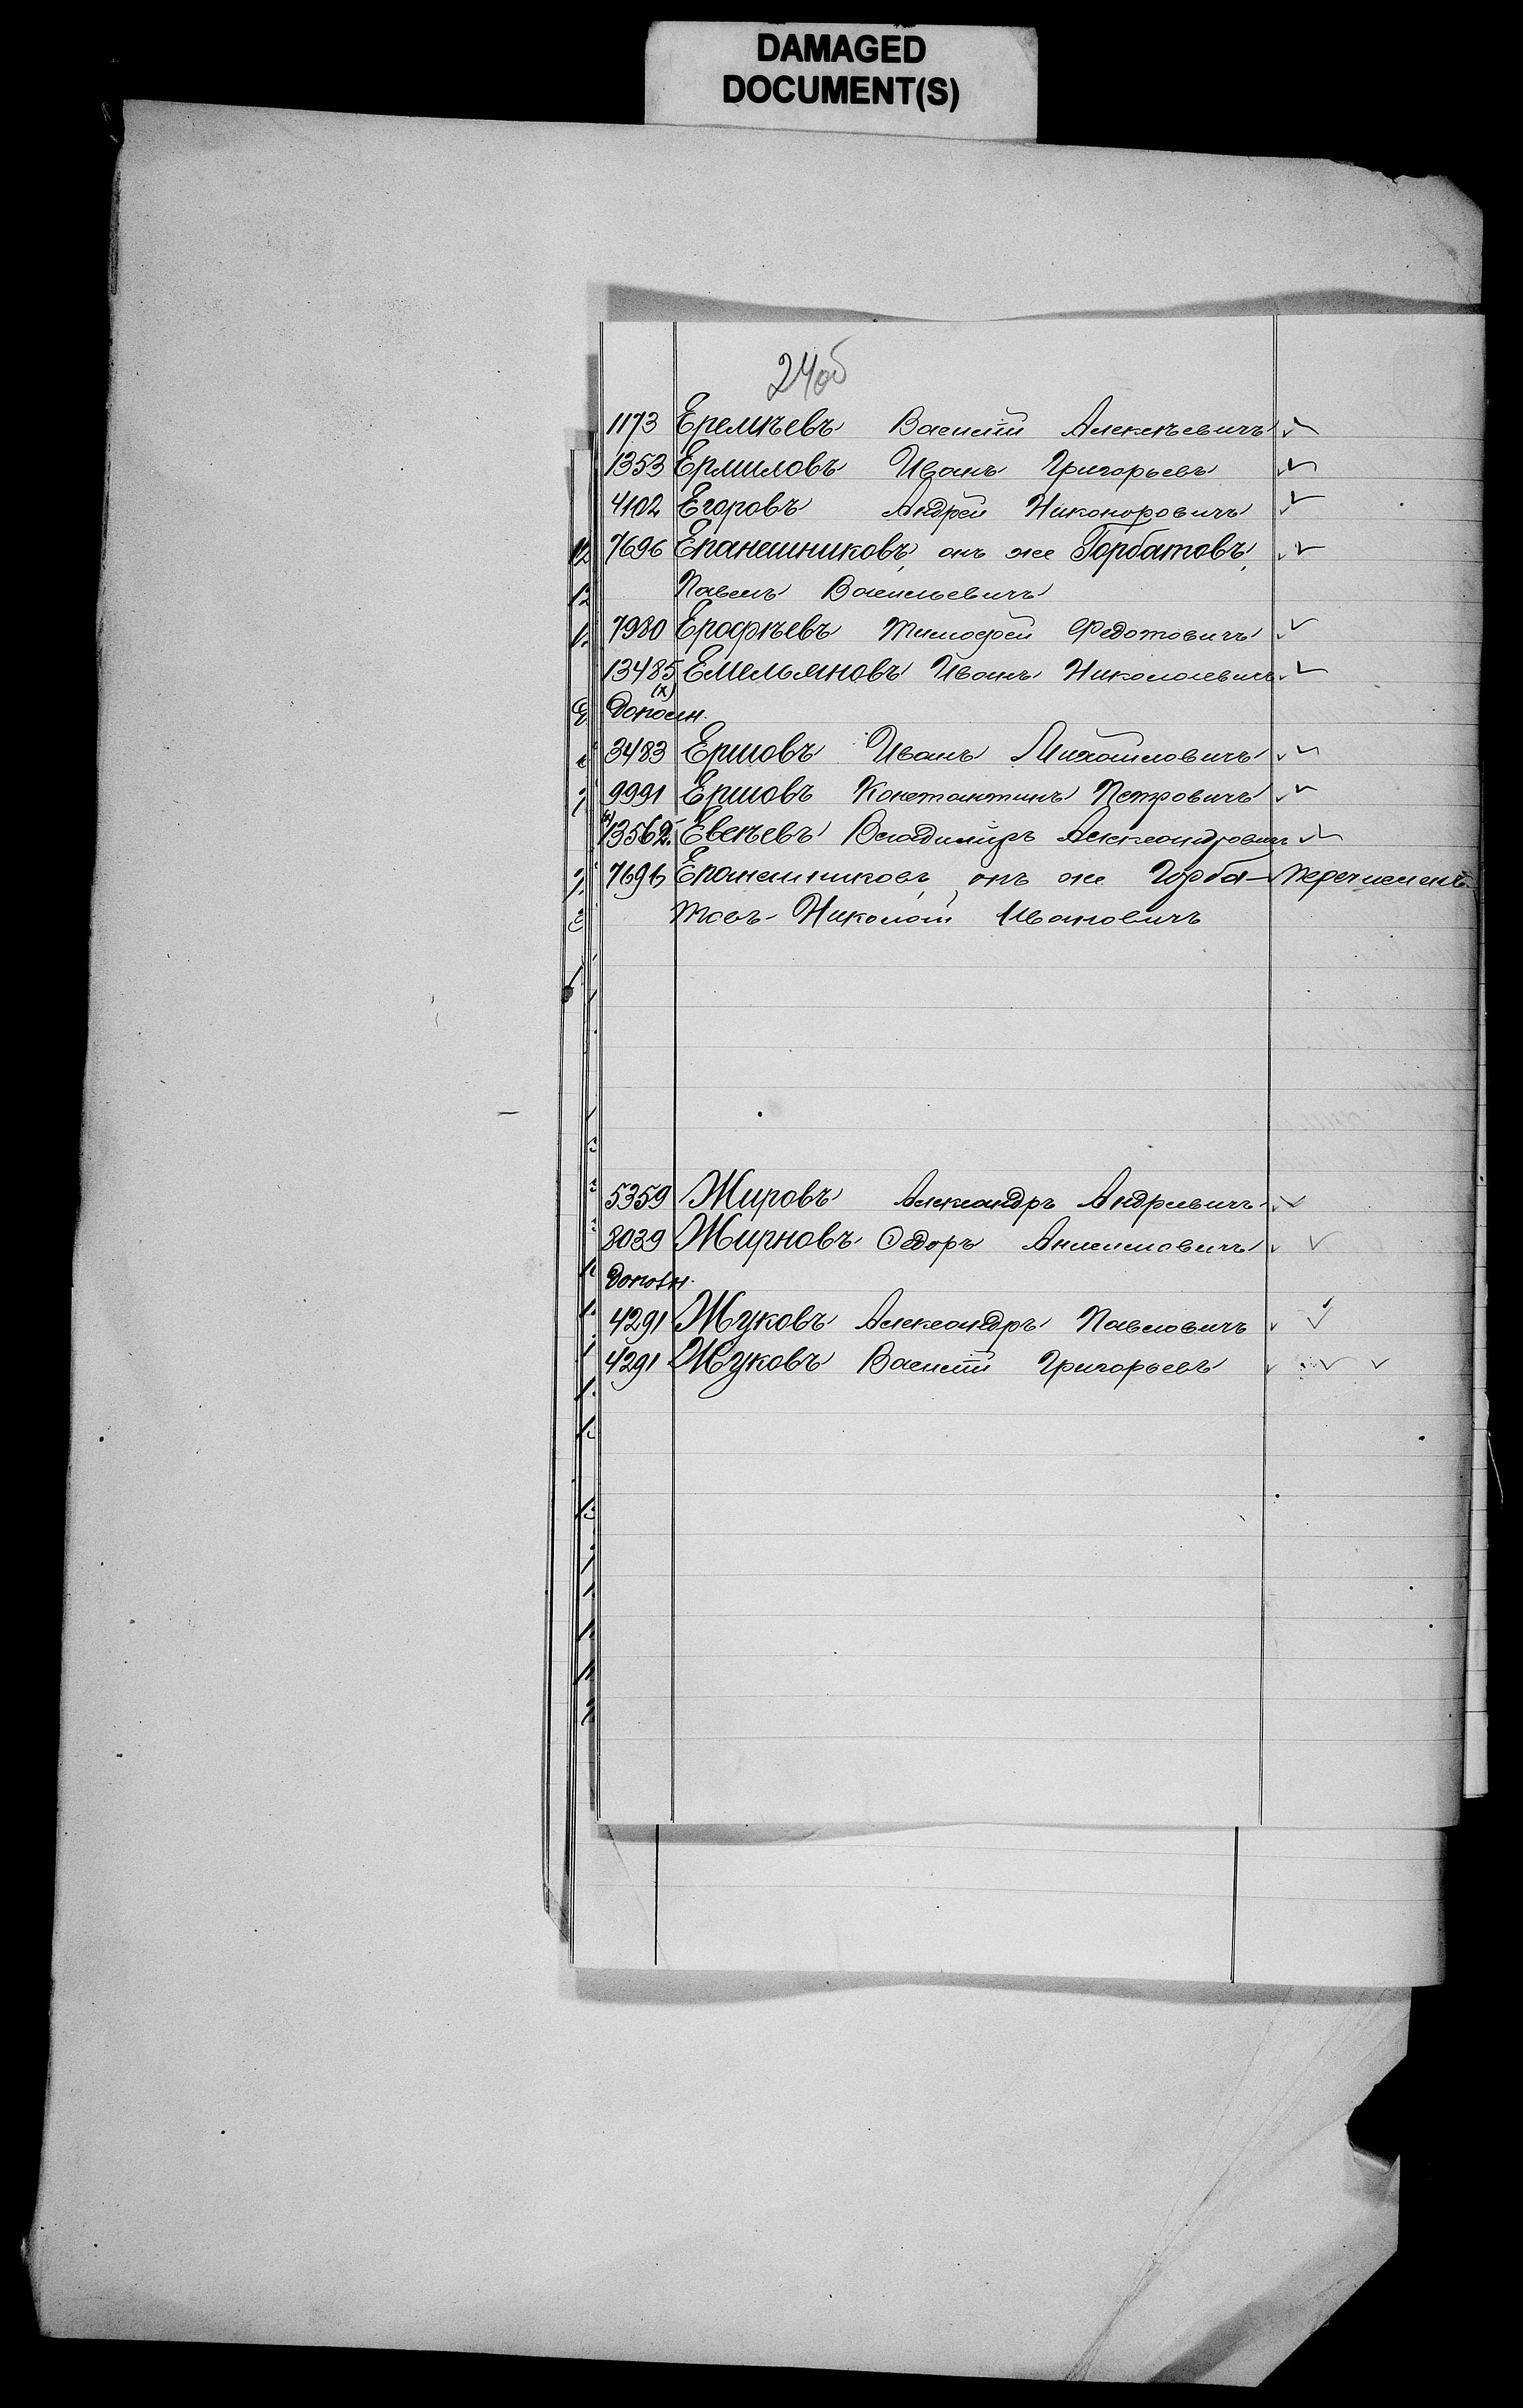 DAMAGED
DOCUMENT(S)
24об
1173 Еремѣевъ Василій Алексѣевичъ
1353 Ермиловъ Иванъ Григорьевъ
4102 Егоровъ Андрей Никоноровичъ
7696 Епанешниковъ, онъ же Горбатовъ,
Павелъ Васильевичъ
7980 Ерофѣевъ Тимофей Федотовичъ
13485 Емельяновъ Иванъ Николаевичъ
(х)
Дополн.
3483 Ершовъ Иванъ Михайловичъ
9991 Ершовъ Константинъ Петровичъ
13562. Евсѣевъ Владиміръ Александровичъ
7696 Епанешниковъ, онъ же Горба- перечисленъ
товъ- Николай Ивановичъ
5359 Жировъ Александръ Андреевичъ
8039 Жирновъ Ѳедоръ Анисимовичъ
Дополн.
4291 Жуковъ Александръ Павловичъ
4291 Жуковъ Василій Григорьевъ